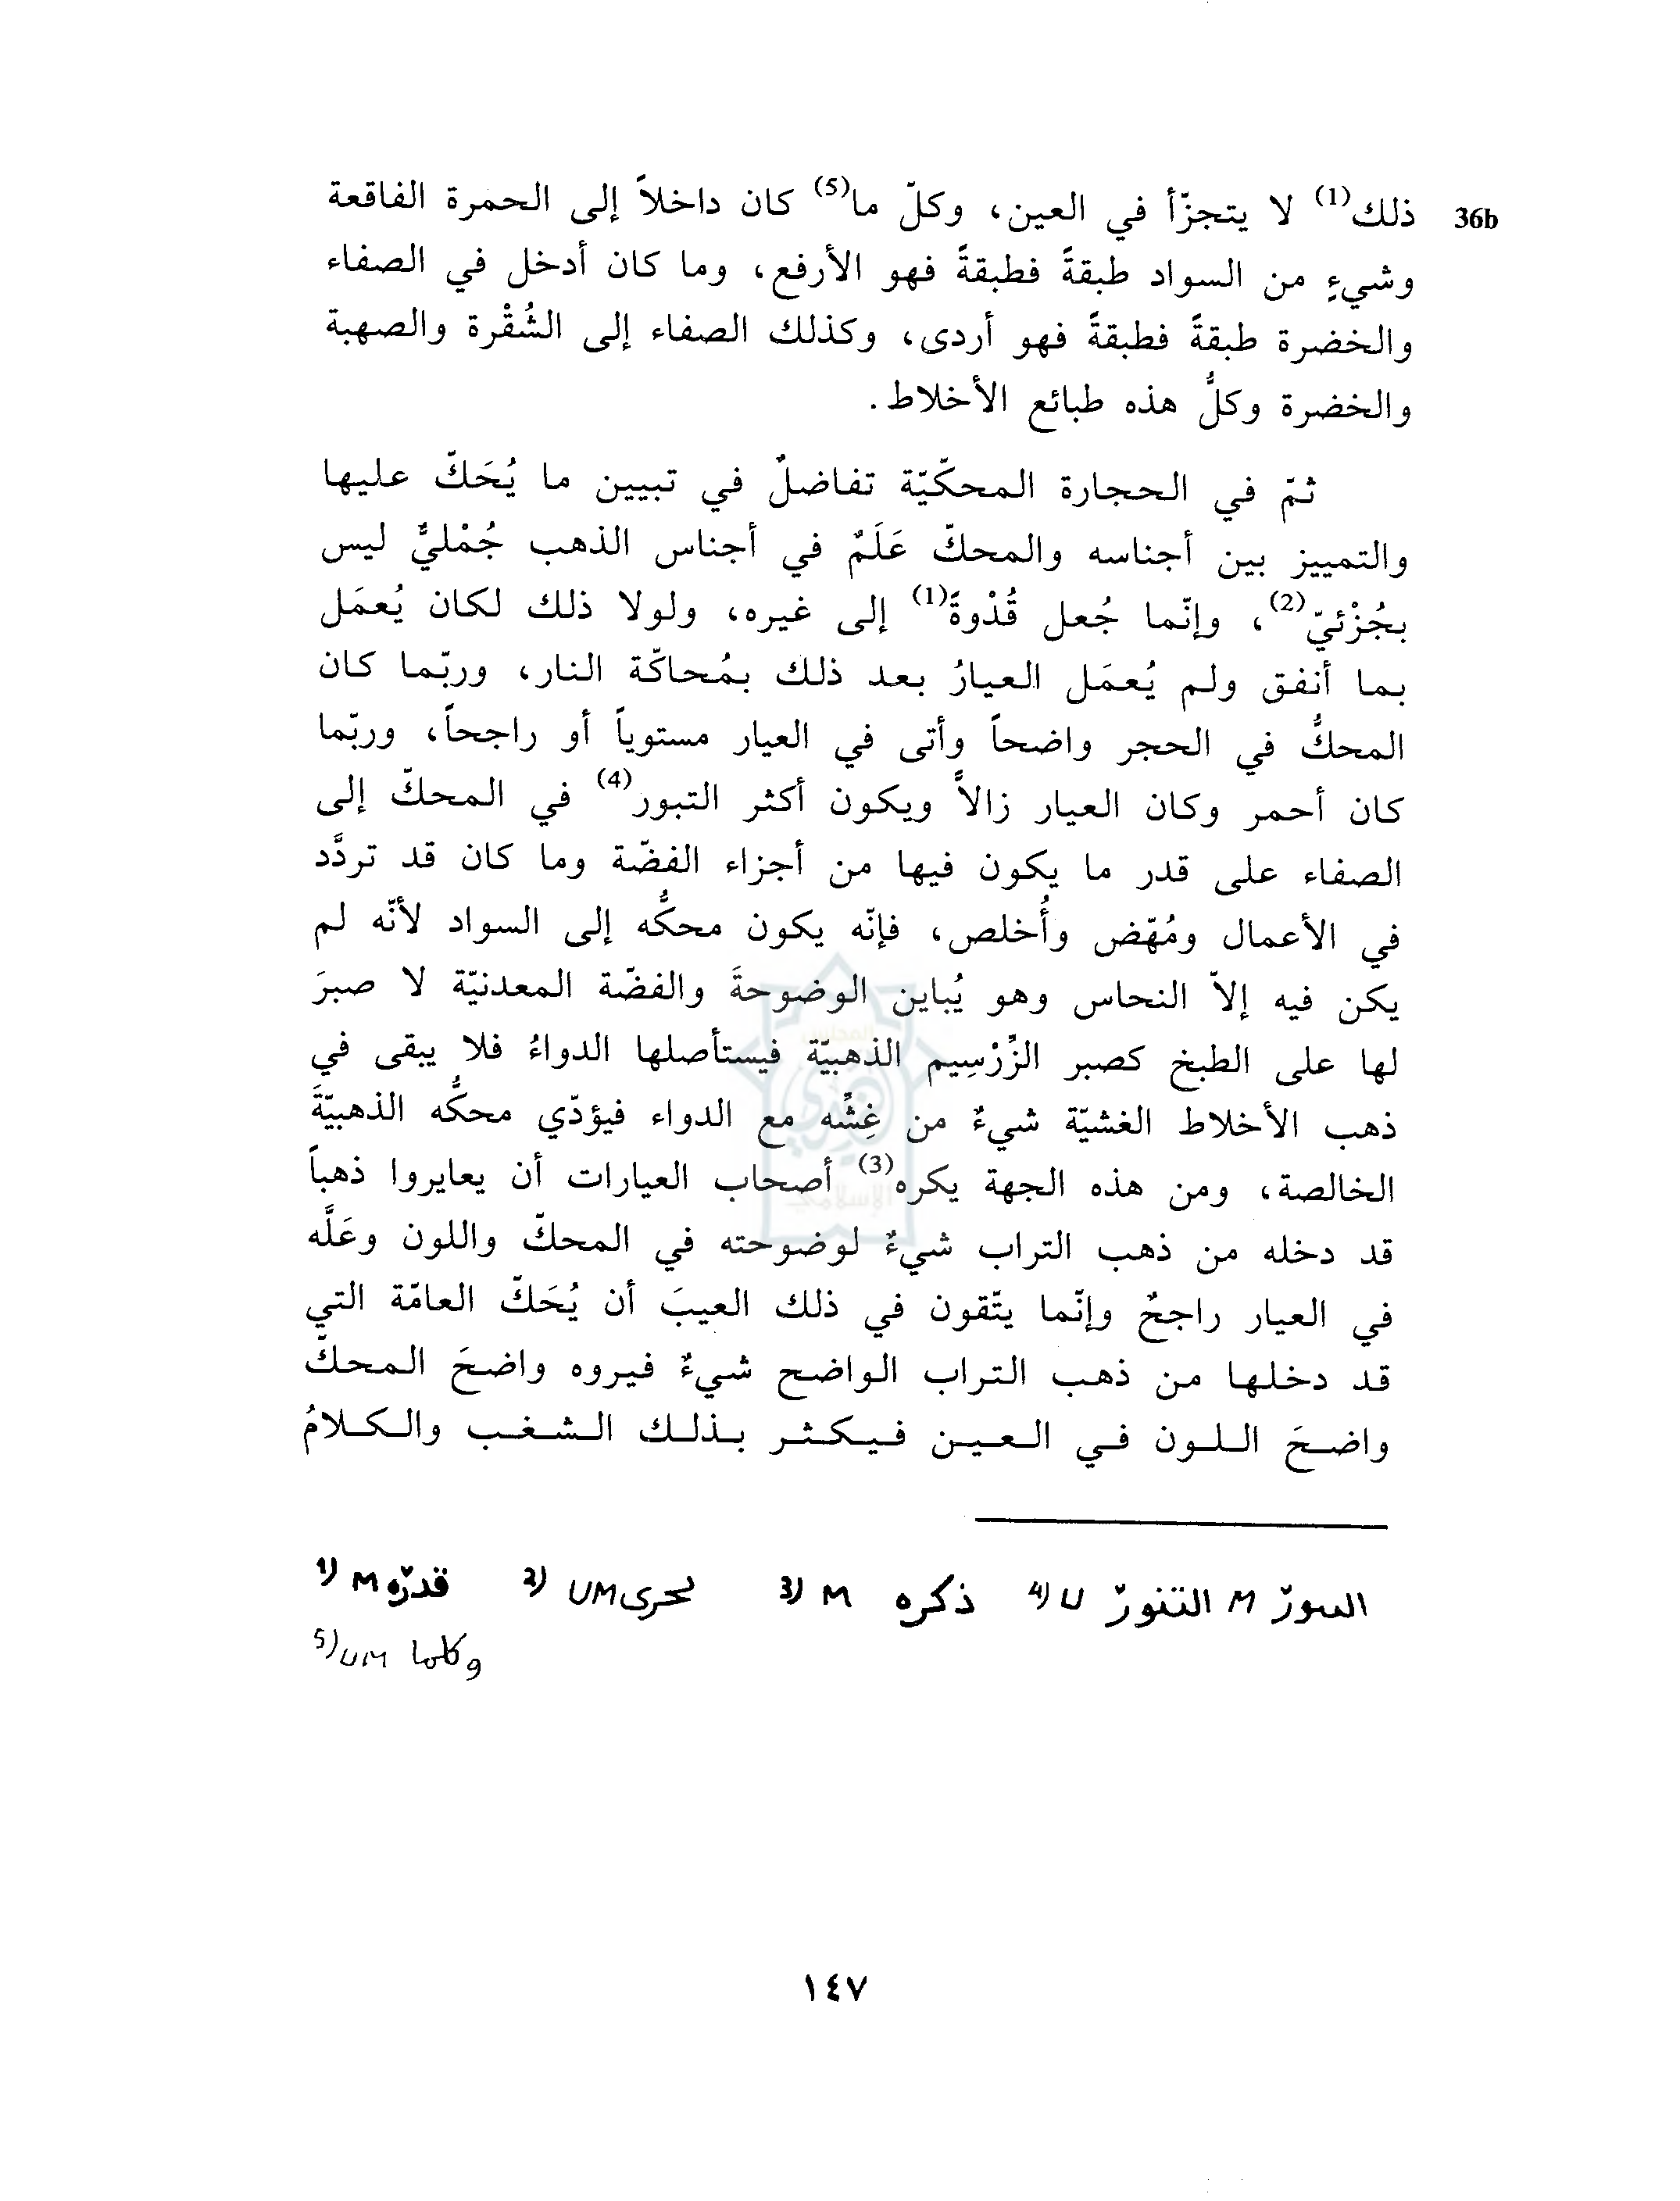 36b ذلك(1) لا يتجزّأ في العين، وكلّ ما(5) كان داخلاً إلى الحمرة الفاقعة
وشيءٍ من السواد طبقةً فطبقةً فهو الأرفع، وما كان أدخل في الصفاء
والخضرة طبقةً فطبقةً فهو أردى، وكذلك الصفاء إلى الشُقْرة والصهبة
والخضرة وكلُّ هذه طبائع الأخلاط.
ثمّ في الحجارة المحكّيّة تفاضلٌ في تبيين ما يُحَكّ عليها
والتمييز بين أجناسه والمحكّ عَلَمٌ في أجناس الذهب جُمْليٌّ ليس
بجُزْئيّ(2)، وإنّما جُعل قُدْوةً(1) إلى غيره، ولولا ذلك لكان يُعمَل
بما أنفق ولم يُعمَل العيارُ بعد ذلك بمُحاكّة النار، وربّما كان
المحكُّ في الحجر واضحاً وأتى في العيار مستوياً أو راجحاً، وربّما
كان أحمر وكان العيار زالاًّ ويكون أكثر التبور(4) في المحكّ إلى
الصفاء على قدر ما يكون فيها من أجزاء الفضّة وما كان قد تردَّد
في الأعمال ومُهّض وأُخلص، فإنّه يكون محكُّه إلى السواد لأنّه لم
يكن فيه إلاّ النحاس وهو يُباين الوضوحةَ والفضّة المعدنيّة لا صبرَ
لها على الطبخ كصبر الزَّرْسِيم الذهبيّة فيستأصلها الدواءُ فلا يبقى في
ذهب الأخلاط الغشيّة شيءٌ من غِشِّه مع الدواء فيؤدّي محكُّه الذهبيّةَ
الخالصة، ومن هذه الجهة يكره(3) أصحاب العيارات أن يعايروا ذهباً
قد دخله من ذهب التراب شيءٌ لوضوحته في المحكّ واللون وعَلَّه
في العيار راجحٌ وإنّما يتّقون في ذلك العيبَ أن يُحَكّ العامّة التي
قد دخلها من ذهب التراب الواضح شيءٌ فيروه واضحَ المحكّ
واضحَ اللون في العين فيكثر بذلك الشغب والكلامُ
1) M قدرّه 2) UM لحرى 3) M ذكره 4) U التنورّ M السورّ
5) UM وكلما
١٤٧